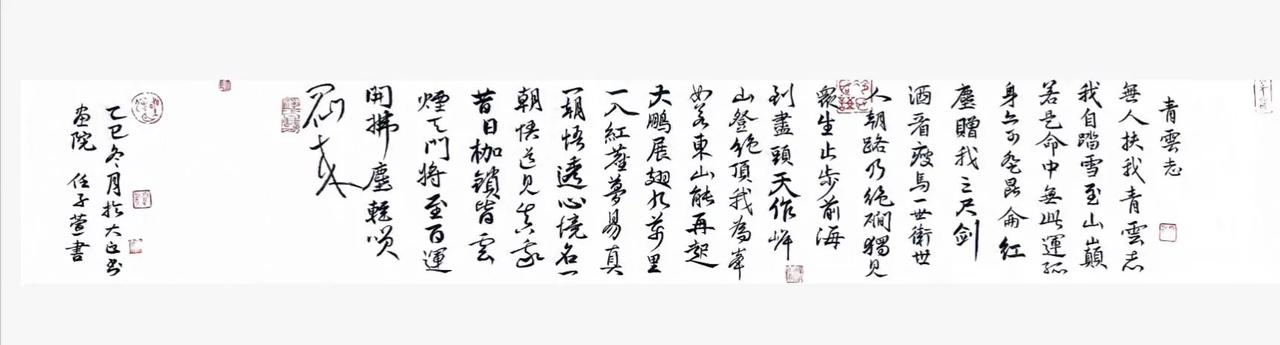 青雲志
無人扶我青雲志
我自踏雪至山巔
若是命中無此運孤
身亦可登昆侖紅
塵贈我三尺劍
酒肴瘦馬一世街世
人朝路乃絕磵獨見
眾生止步前海
到盡頭天作岸
山登絕頂我為峯
如若東山能再起
大鵬展翅九萬里
一入紅塵夢易真
一朝悟透心境名一
朝悟道見真我
昔日枷鎖皆雲
煙天門將至百運
開拂塵輕嘆
乙巳冬月於大書
畫院 任子萱書